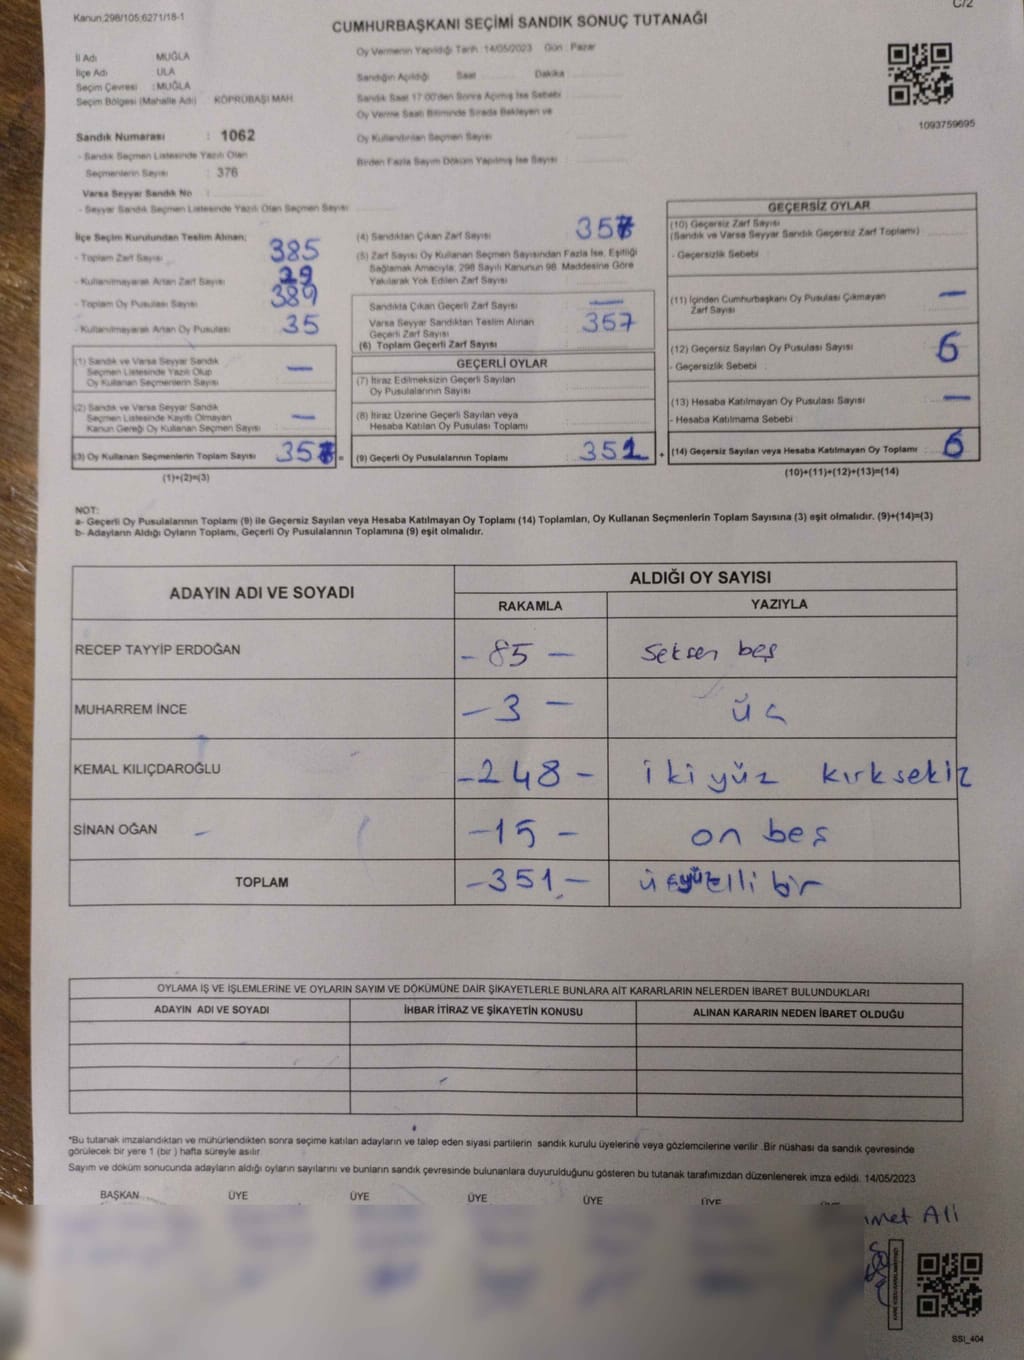 Kanun;298/105;6271/18-1
C/2
CUMHURBAŞKANI SEÇİMİ SANDIK SONUÇ TUTANAĞI
İl Adı MUĞLA
İlçe Adı ULA
Seçim Çevresi : MUĞLA
Seçim Bölgesi (Mahalle Adı) KÖPRÜBAŞI MAH.
Oy Vermenin Yapıldığı Tarih 14/05/2023 Gün : Pazar
Sandığın Açıldığı Saat Dakika
Sandık Saat 17:00'den Sonra Açılmış İse Sebebi
Oy Verme Saati Bitiminde Sırada Bekleyen ve
Oy Kullandırılan Seçmen Sayısı
Birden Fazla Sayım Döküm Yapılmış İse Sayısı
1093759695
Sandık Numarası : 1062
- Sandık Seçmen Listesinde Yazılı Olan
Seçmenlerin Sayısı : 376
Varsa Seyyar Sandık No
- Seyyar Sandık Seçmen Listesinde Yazılı Olan Seçmen Sayısı
İlçe Seçim Kurulundan Teslim Alınan;
- Toplam Zarf Sayısı 385
- Kullanılmayarak Artan Zarf Sayısı
- Toplam Oy Pusulası Sayısı 389
- Kullanılmayarak Artan Oy Pusulası 35
(1) Sandık ve Varsa Seyyar Sandık
Seçmen Listesinde Yazılı Olup
Oy Kullanan Seçmenlerin Sayısı —
(2) Sandık ve Varsa Seyyar Sandık
Seçmen Listesinde Kayıtlı Olmayan
Kanun Gereği Oy Kullanan Seçmen Sayısı —
(3) Oy Kullanan Seçmenlerin Toplam Sayısı 357 =
(1)+(2)=(3)
(4) Sandıktan Çıkan Zarf Sayısı 357
(5) Zarf Sayısı Oy Kullanan Seçmen Sayısından Fazla İse, Eşitliği
Sağlamak Amacıyla, 298 Sayılı Kanunun 98. Maddesine Göre
Yakılarak Yok Edilen Zarf Sayısı
Sandıkta Çıkan Geçerli Zarf Sayısı —
Varsa Seyyar Sandıktan Teslim Alınan
Geçerli Zarf Sayısı 357
(6) Toplam Geçerli Zarf Sayısı
GEÇERLİ OYLAR
(7) İtiraz Edilmeksizin Geçerli Sayılan
Oy Pusulalarının Sayısı
(8) İtiraz Üzerine Geçerli Sayılan veya
Hesaba Katılan Oy Pusulası Toplamı
(9) Geçerli Oy Pusulalarının Toplamı 351 +
GEÇERSİZ OYLAR
(10) Geçersiz Zarf Sayısı
(Sandık ve Varsa Seyyar Sandık Geçersiz Zarf Toplamı)
- Geçersizlik Sebebi
(11) İçinden Cumhurbaşkanı Oy Pusulası Çıkmayan
Zarf Sayısı —
(12) Geçersiz Sayılan Oy Pusulası Sayısı 6
- Geçersizlik Sebebi :
(13) Hesaba Katılmayan Oy Pusulası Sayısı —
- Hesaba Katılmama Sebebi
(14) Geçersiz Sayılan veya Hesaba Katılmayan Oy Toplamı : 6
(10)+(11)+(12)+(13)=(14)
NOT:
a- Geçerli Oy Pusulalarının Toplamı (9) ile Geçersiz Sayılan veya Hesaba Katılmayan Oy Toplamı (14) Toplamları, Oy Kullanan Seçmenlerin Toplam Sayısına (3) eşit olmalıdır. (9)+(14)=(3)
b- Adayların Aldığı Oyların Toplamı, Geçerli Oy Pusulalarının Toplamına (9) eşit olmalıdır.
ADAYIN ADI VE SOYADI
ALDIĞI OY SAYISI
RAKAMLA YAZIYLA
RECEP TAYYİP ERDOĞAN - 85 - Seksen beş
MUHARREM İNCE - 3 - Üç
KEMAL KILIÇDAROĞLU - 248 - iki yüz kırk sekiz
SİNAN OĞAN - 15 - on beş
TOPLAM - 351 - üçyüzelli bir
OYLAMA İŞ VE İŞLEMLERİNE VE OYLARIN SAYIM VE DÖKÜMÜNE DAİR ŞİKAYETLERLE BUNLARA AİT KARARLARIN NELERDEN İBARET BULUNDUKLARI
ADAYIN ADI VE SOYADI İHBAR İTİRAZ VE ŞİKAYETİN KONUSU ALINAN KARARIN NEDEN İBARET OLDUĞU
*Bu tutanak imzalandıktan ve mühürlendikten sonra seçime katılan adayların ve talep eden siyasi partilerin sandık kurulu üyelerine veya gözlemcilerine verilir. Bir nüshası da sandık çevresinde
görülecek bir yere 1 (bir ) hafta süreyle asılır.
Sayım ve döküm sonucunda adayların aldığı oyların sayılarını ve bunların sandık çevresinde bulunanlara duyurulduğunu gösteren bu tutanak tarafımızdan düzenlenerek imza edildi. 14/05/2023
BAŞKAN ÜYE ÜYE ÜYE ÜYE ÜYE
Ali
SSI_404